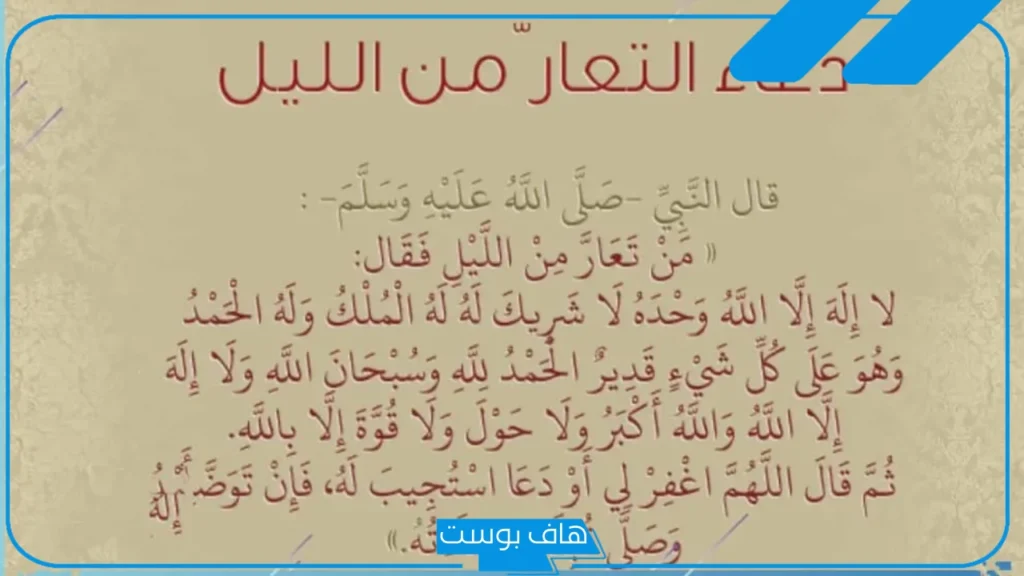 دعاء التعارّ من الليل
قال النَّبِيِّ -صَلَّى اللَّهُ عَلَيْهِ وَسَلَّمَ- :
« مَنْ تَعَارَّ مِنْ اللَّيْلِ فَقَال:
لا إِلَهَ إِلَّا اللَّهُ وَحْدَهُ لَا شَرِيكَ لَهُ لَهُ الْمُلْكُ وَلَهُ الْحَمْدُ
وَهُوَ عَلَى كُلِّ شَيْءٍ قَدِيرٌ الْحَمْدُ لِلَّهِ وَسُبْحَانَ اللَّهِ وَلَا إِلَهَ
إِلَّا اللَّهُ وَاللَّهُ أَكْبَرُ وَلَا حَوْلَ وَلَا قُوَّةَ إِلَّا بِاللَّهِ.
ثُمَّ قَالَ اللَّهُمَّ اغْفِرْ لِي أَوْ دَعَا اسْتُجِيبَ لَهُ، فَإِنْ
وَصَلَّى
هاف بوست